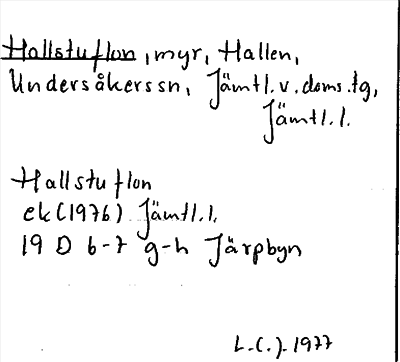 Hallstuflon, myr, Hallen,
Undersåkerssn, Jämtl.v.doms.tg,
Jämtl.l.
Hallstuflon
ek(1976) Jämtl.l.
19 D 6-7 g-h Järpbyn
L.C.J.1977